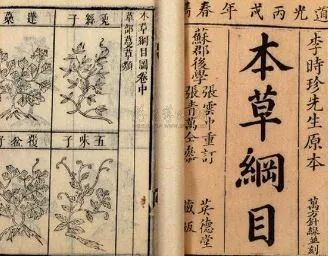 道光丙戌年春鐫
李時珍先生原本
萬方針線並刻
本草綱目
張雲中重訂
蘇郡後學
張青萬仝參
英德堂
藏板
本草綱目圖卷中
草部蔓草類
兎絲子
蓬虆
五味子
覆盆子